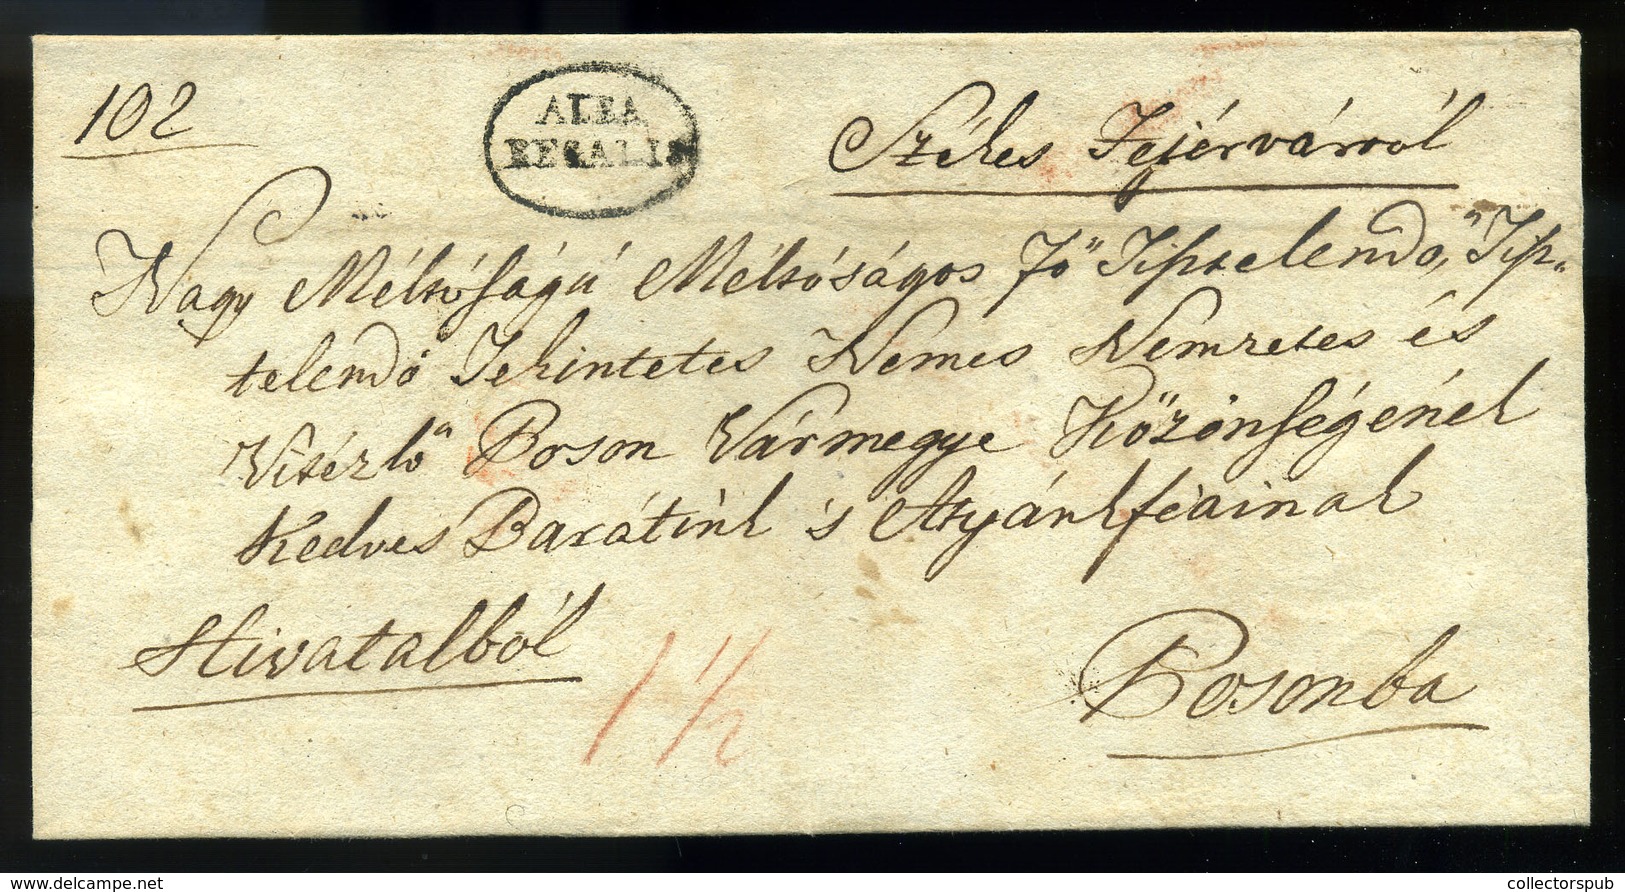 102
ALBA
REGALIS
Székes Fejérvárról
Nagy Méltóságú Méltóságos Fő Tisztelendő, Tisz-
telendő Tekintetes Nemes Nemzetes és
Vitézlő Poson Vármegye Közönségének
Kedves Barátink 's Atyánkfiainak
Hivatalból
1 1/2
Posonba
www.delcampe.net
collectorspub